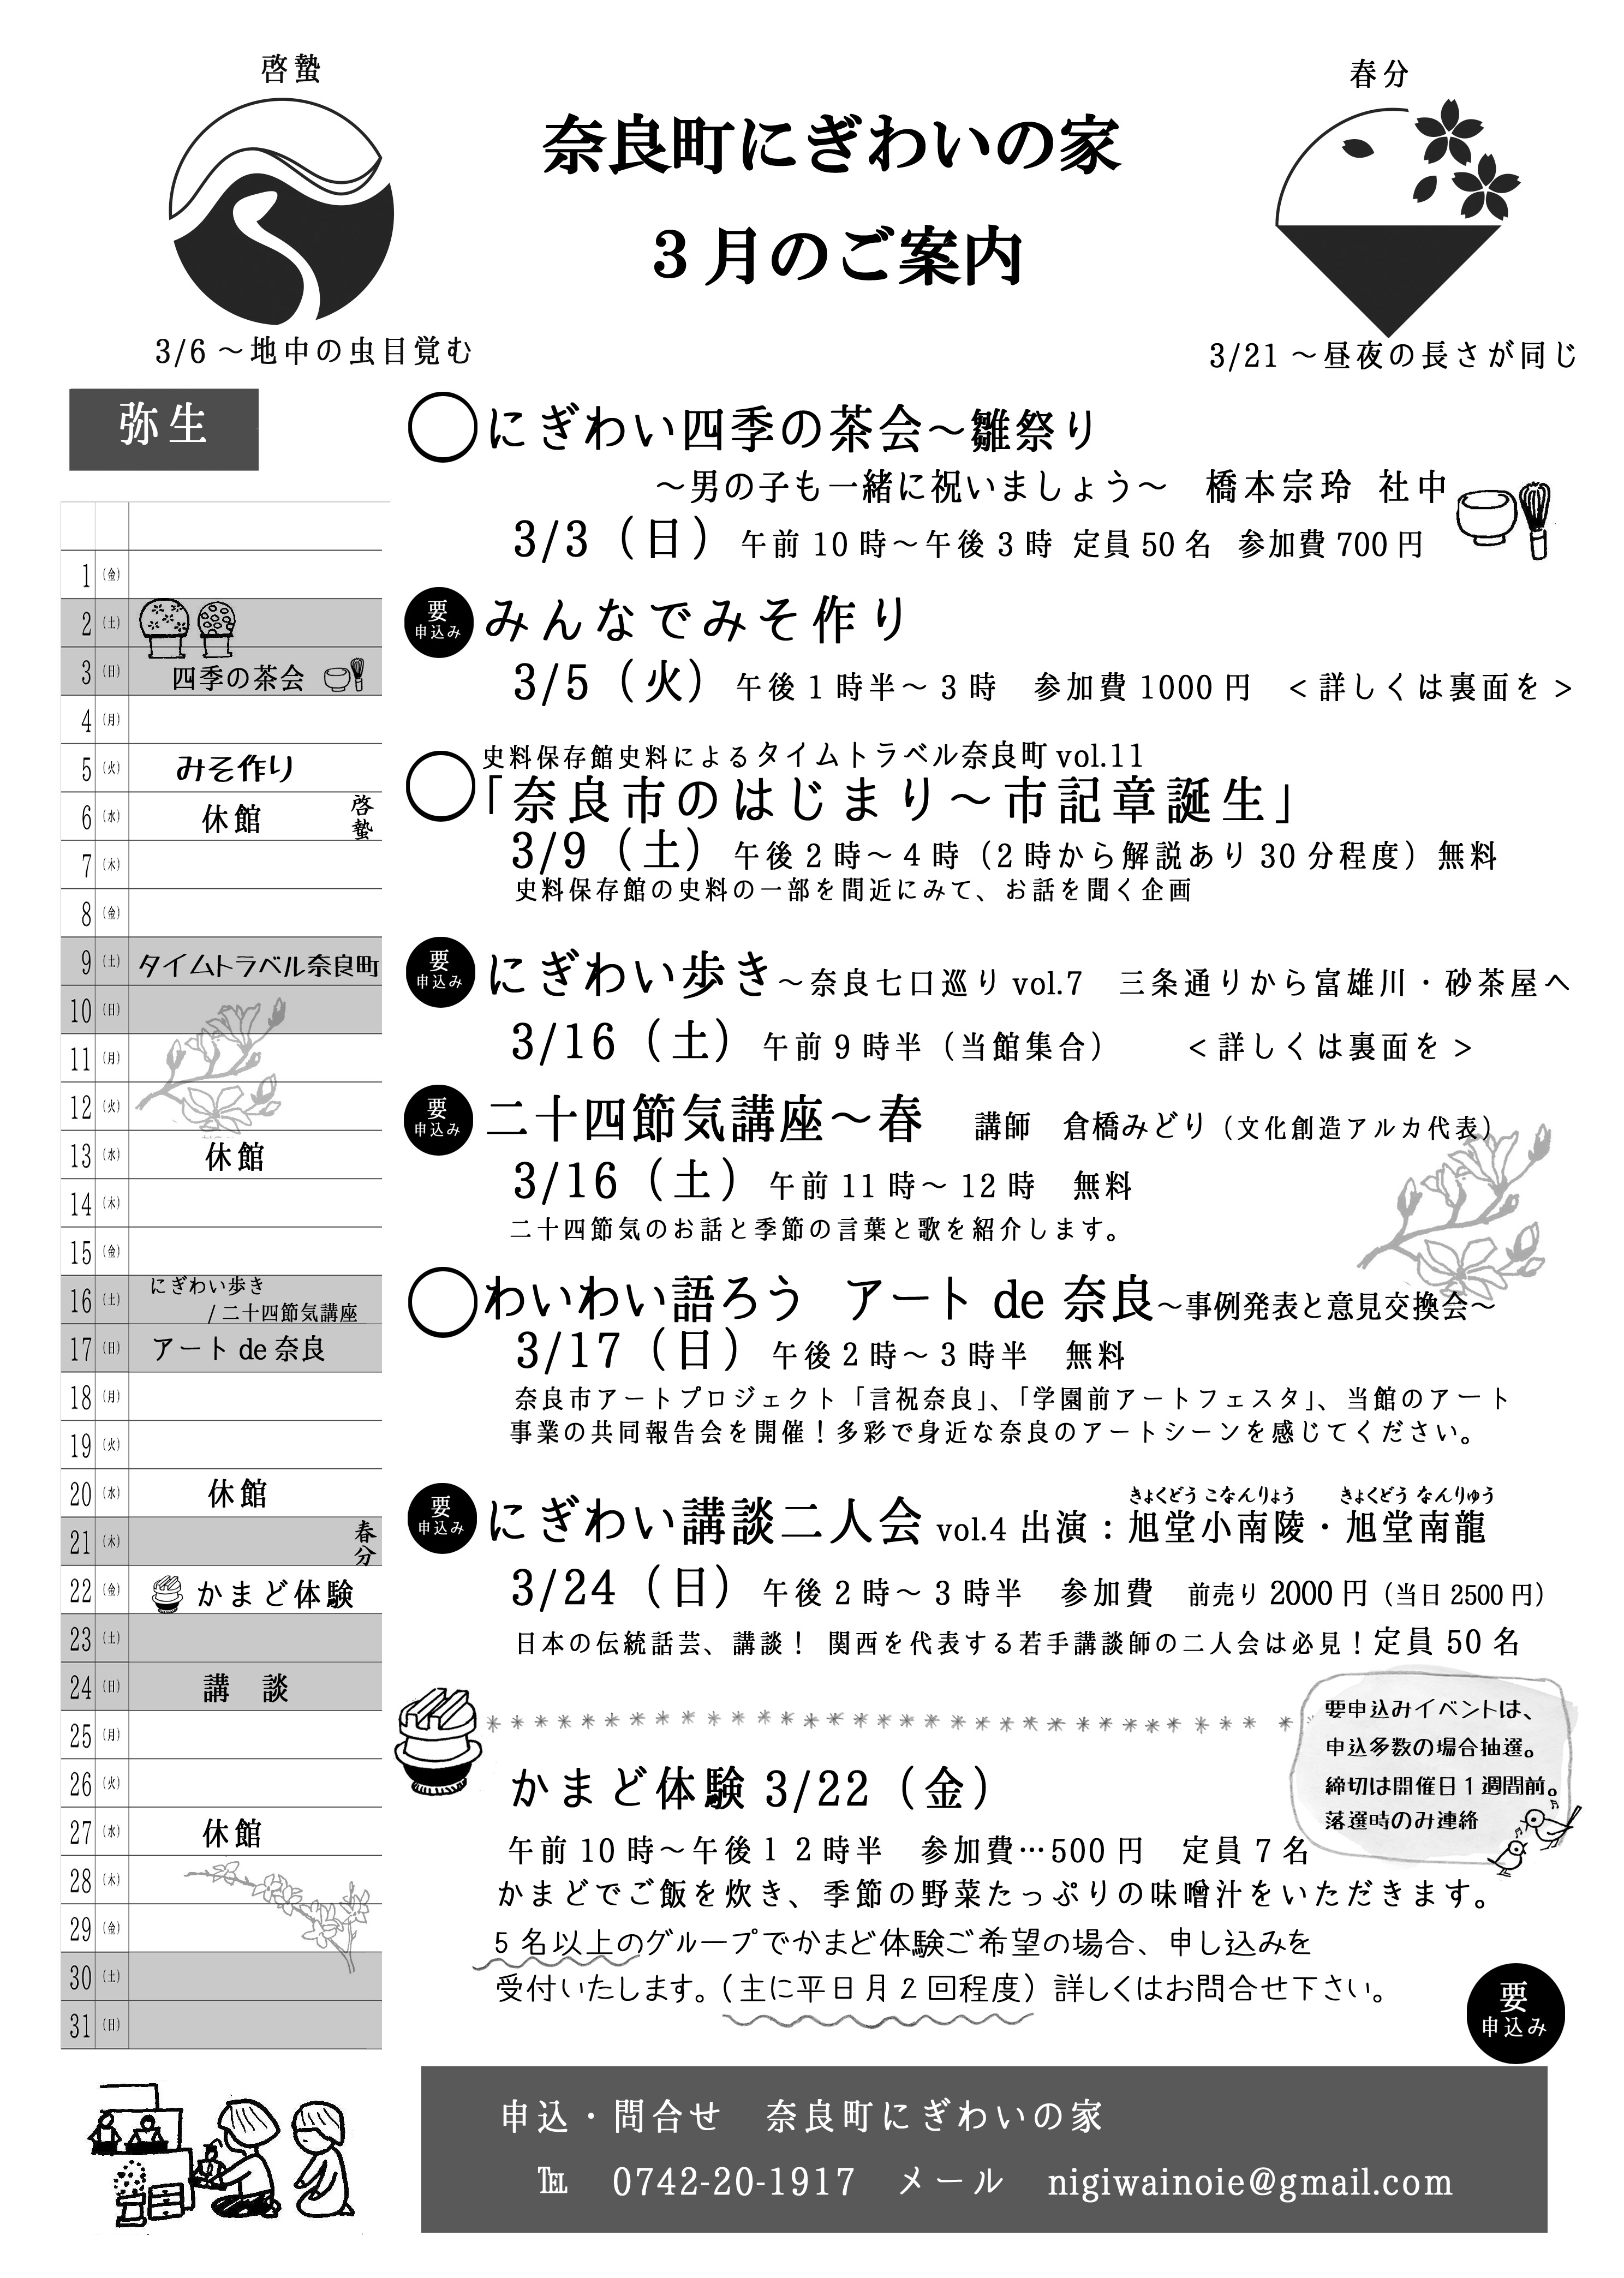 啓蟄
春分
奈良町にぎわいの家
3月のご案内
3/6 ～地中の虫目覚む
3/21 ～昼夜の長さが同じ
弥生
1 (金)
2 (土)
3 (日) 四季の茶会
4 (月)
5 (火) みそ作り
6 (水) 休館 啓蟄
7 (木)
8 (金)
9 (土) タイムトラベル奈良町
10 (日)
11 (月)
12 (火)
13 (水) 休館
14 (木)
15 (金)
16 (土) にぎわい歩き
/ 二十四節気講座
17 (日) アート de 奈良
18 (月)
19 (火)
20 (水) 休館
21 (木) 春分
22 (金) かまど体験
23 (土)
24 (日) 講 談
25 (月)
26 (火)
27 (水) 休館
28 (木)
29 (金)
30 (土)
31 (日)
にぎわい四季の茶会～雛祭り
～男の子も一緒に祝いましょう～ 橋本宗玲 社中
3/3（日） 午前 10 時～午後 3 時 定員 50 名 参加費 700 円
要申込み みんなでみそ作り
3/5（火） 午後 1 時半～ 3 時 参加費 1000 円 < 詳しくは裏面を >
史料保存館史料によるタイムトラベル奈良町 vol.11
「奈良市のはじまり～市記章誕生」
3/9（土） 午後 2 時～ 4 時（2 時から解説あり 30 分程度）無料
史料保存館の史料の一部を間近にみて、お話を聞く企画
要申込み にぎわい歩き～奈良七口巡り vol.7 三条通りから富雄川・砂茶屋へ
3/16（土） 午前 9 時半（当館集合） < 詳しくは裏面を >
要申込み 二十四節気講座～春 講師 倉橋みどり（文化創造アルカ代表）
3/16（土） 午前 11 時～ 12 時 無料
二十四節気のお話と季節の言葉と歌を紹介します。
わいわい語ろう アート de 奈良～事例発表と意見交換会～
3/17（日） 午後 2 時～ 3 時半 無料
奈良市アートプロジェクト「言祝奈良」、「学園前アートフェスタ」、当館のアート
事業の共同報告会を開催！多彩で身近な奈良のアートシーンを感じてください。
きょくどう こなんりょう きょくどう なんりゅう
要申込み にぎわい講談二人会 vol.4 出演：旭堂小南陵・旭堂南龍
3/24（日） 午後 2 時～ 3 時半 参加費 前売り 2000 円（当日 2500 円）
日本の伝統話芸、講談！ 関西を代表する若手講談師の二人会は必見！定員 50 名
要申込みイベントは、
申込多数の場合抽選。
締切は開催日1週間前。
落選時のみ連絡
かまど体験 3/22（金）
午前 10 時～午後１２時半 参加費…500 円 定員 7 名
かまどでご飯を炊き、季節の野菜たっぷりの味噌汁をいただきます。
5 名以上のグループでかまど体験ご希望の場合、申し込みを
受付いたします。（主に平日月 2 回程度）詳しくはお問合せ下さい。
要申込み
申込・問合せ 奈良町にぎわいの家
℡ 0742-20-1917 メール nigiwainoie@gmail.com